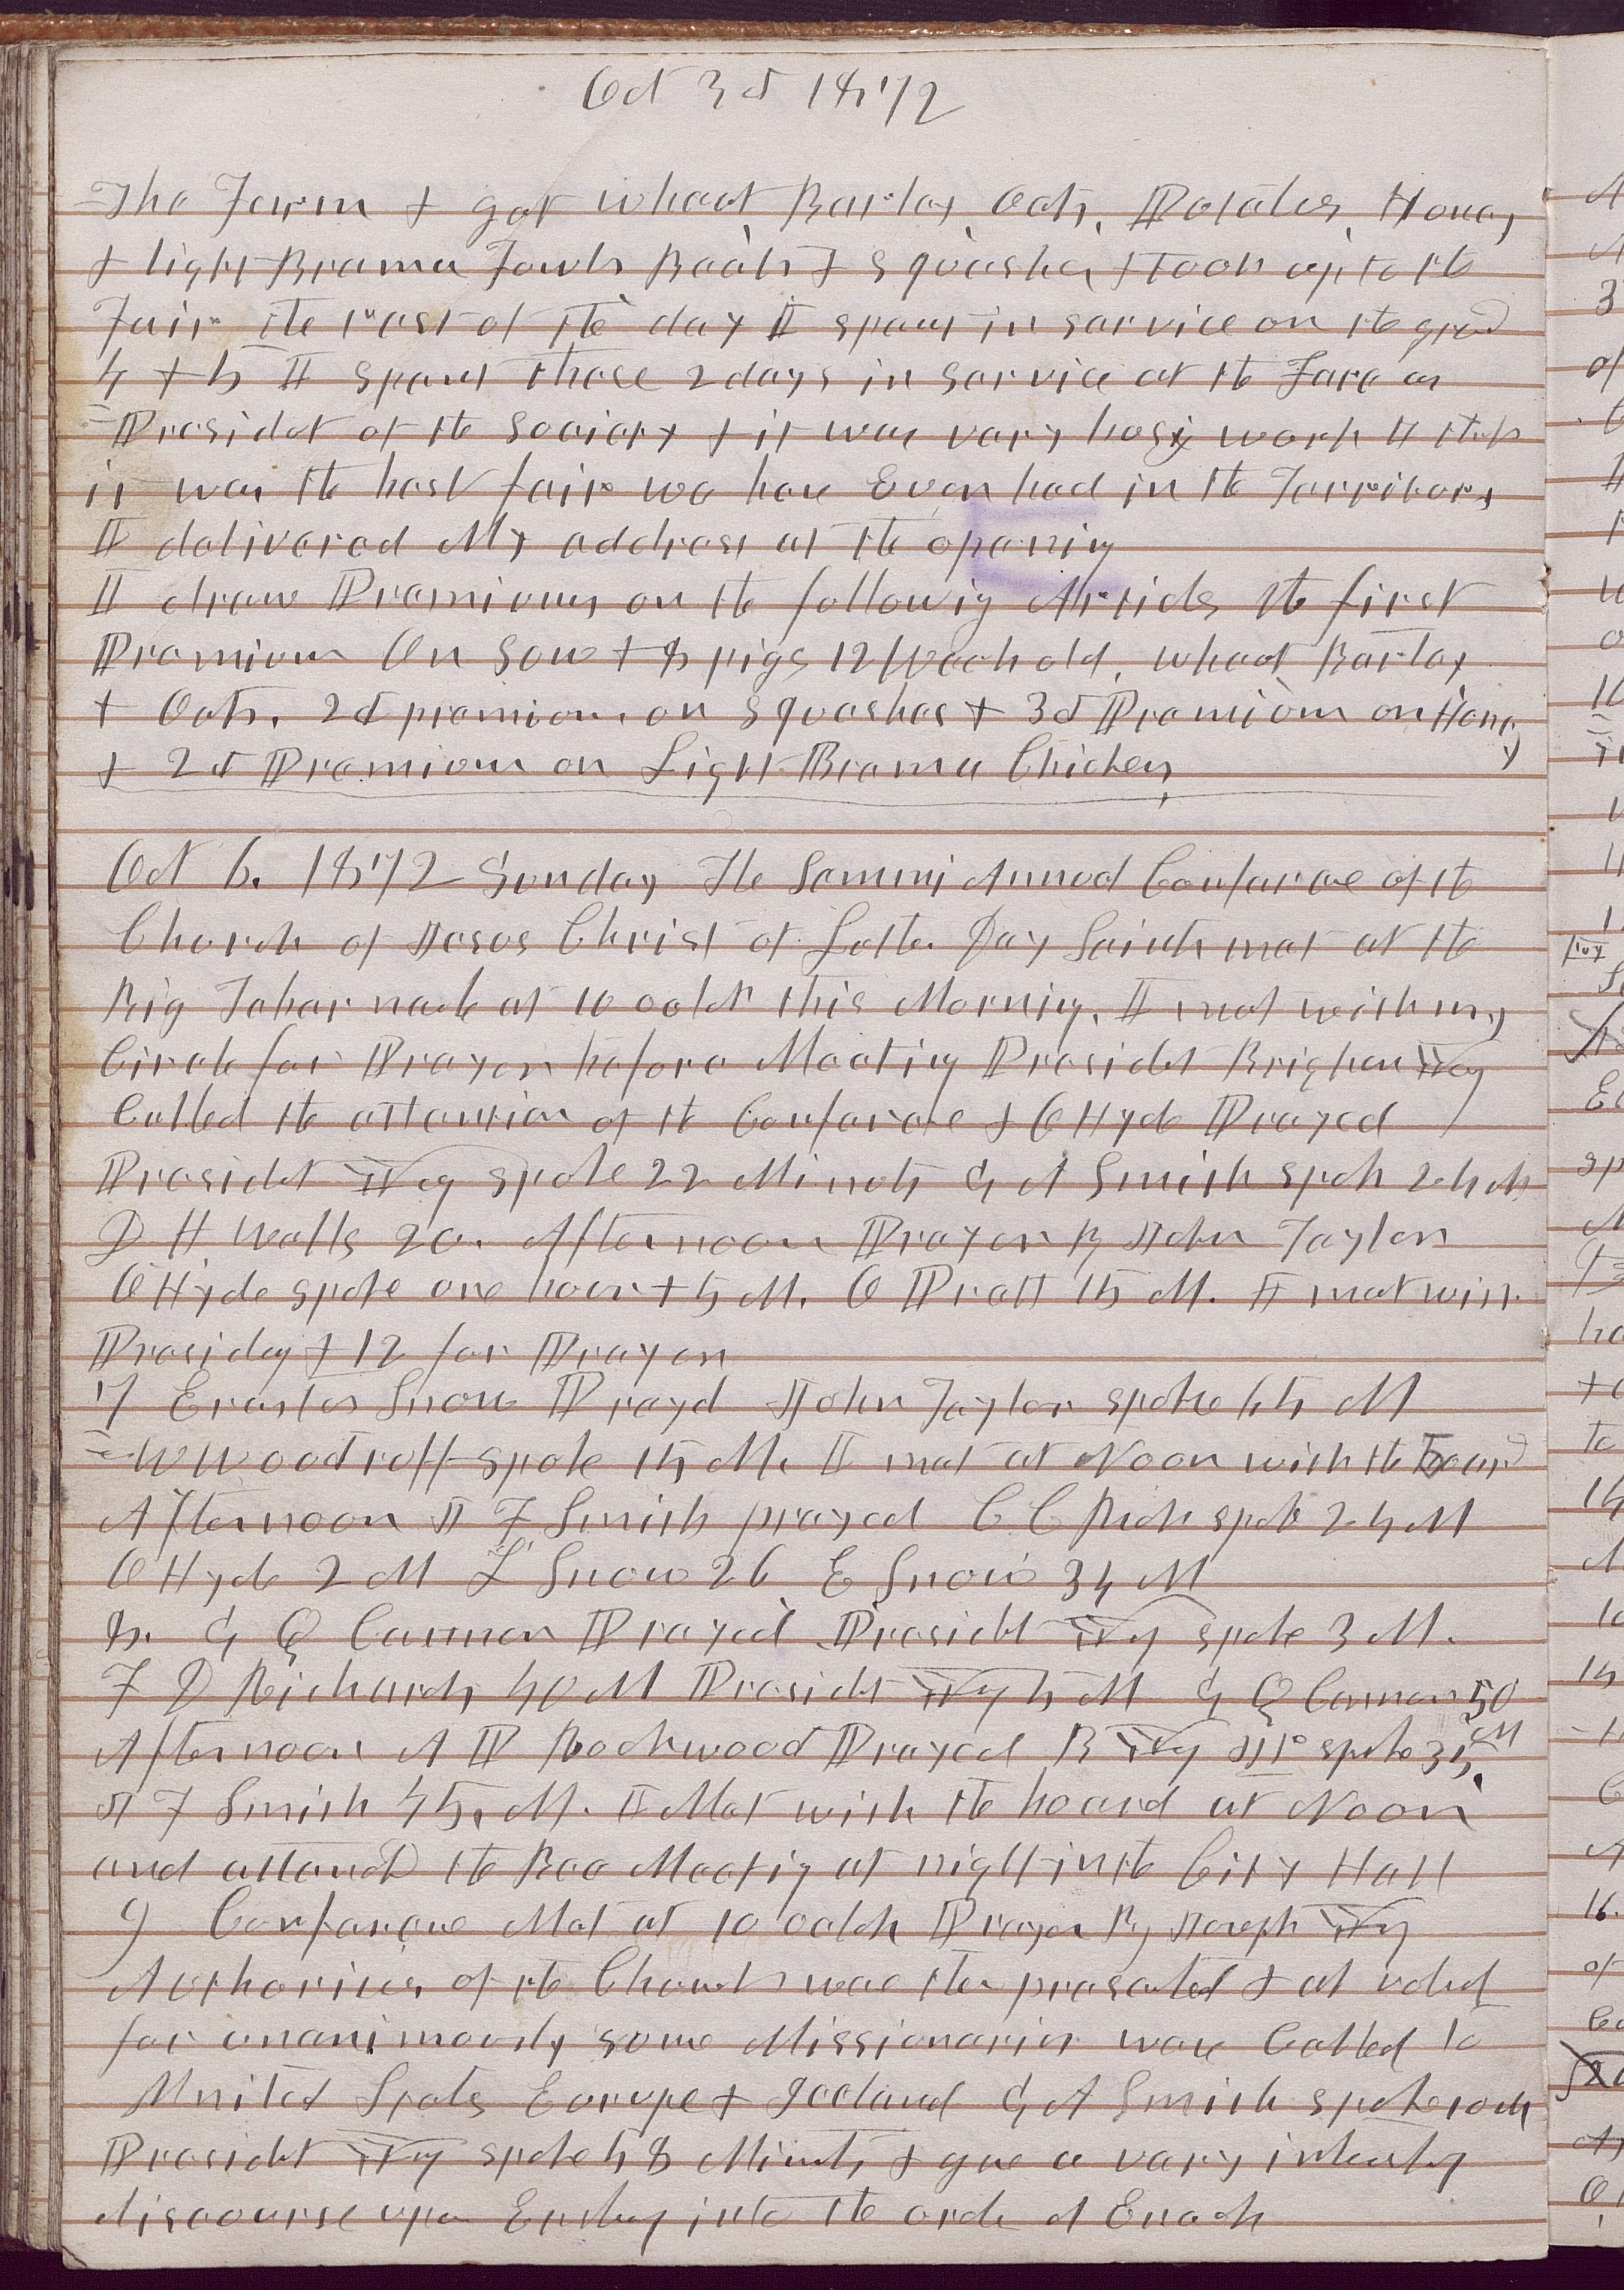 Oct 3d 1872
The Farm & got wheat Barley, Oats, Potatoes, Honey
& light Brama Fowls Beats & squashes & took up to the
Fair the rest of the day I spent in service on the grod
4 & 5 I spent those 2 days in service at the Fare as
Presidet of the Society & it was vary busy work I think
it was the best fair we have Ever had in the Territory
I delivered My address at the opening
I drew Premiums on the followig Articles the first
Premium On Sow & 8 pigs 12 Week old, wheat Barley
& Oats. 2d premium on squashes & 3d Premium on Honey
& 2d Premium on Light Brama Chickens
Oct 6. 1872 Sunday The Semmi Annual Confarence of the
Church of Jesus Christ of Latter Day Saints met at the
Big Tabernacle at 10 oclok this Morning. I met with my
Circle for Prayer before Meeting President Brigham Young
Called the attention of the Confarence & O Hyde Prayed
President Young spoke 22 Minuts G A Smith spok 24 M
D H Wells 20. Afternoon Prayer By John Taylor
O Hyde spoke one hour & 5 M. O Pratt 15 M. I met with
Presidey & 12 for Prayer
7 Erastus Snow Prayd John Taylor spoke 65 M
W Woodruff spoke 15 M. I met at Noon with the board
Afternoon J F Smith prayed C C Rich spoke 24 M
O Hyde 2 M L Snow 26 E Snow 34 M
8. G Q Cannon Prayed Presidet Young spoke 3 M.
F D Richards 40 M Presidet Young 5 M G Q Cannon 50
Afternoon A P Rockwood Prayed B Young Jr spoke 35 M
J F Smith 45, M. I Met with the board at Noon
and attended the Bee Meetig at night in the City Hall
9 Confarence Met at 10 oclok Prayer By Joseph Young
Authorities of the Church was then presented & all voted
for unanimously some Missionaries ware Called to
United States Europe & Iceland G A Smith spoke 10 M
Presidet Young spoke 58 Minuts & gave a vary interesting
discourse upon Entering into the order of Enoch